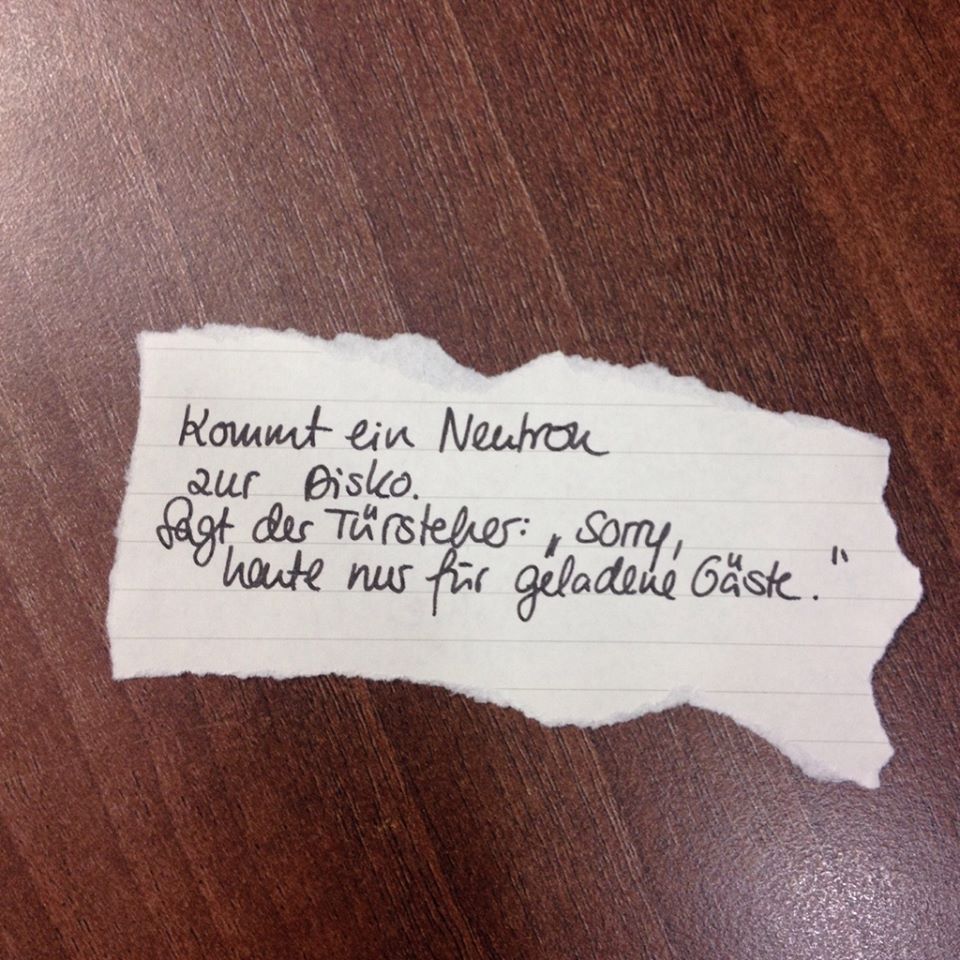 Kommt ein Neutron
zur Disko.
Sagt der Türsteher: „Sorry,
heute nur für geladene Gäste.“